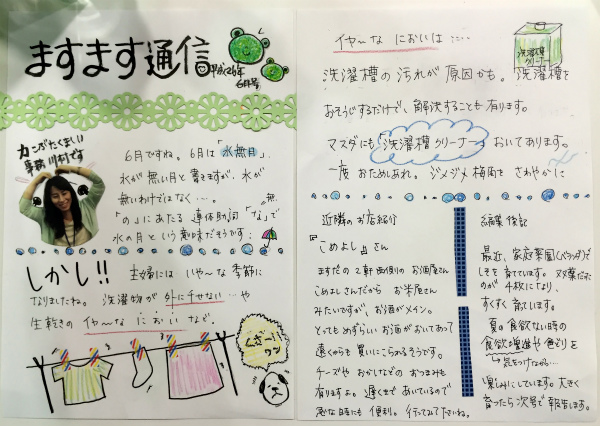 ますます通信
平成26年
6月号
カンぶたくましい
事務 川村です
6月ですね。6月は「水無月」
水が無い月と書きますが、水が
無いわけではなく…。
「の」にあたる連体助詞「な」で
無
水の月という意味だそうです。
しかし!!
主婦には いや〜な 季節に
なりましたね。洗濯物が 外に干せない…や
生乾きの イヤ〜な におい など。
くんさ〜い!!
ワン
イヤ〜な においは……
洗濯槽
クリーナー
洗濯槽の 汚れが 原因かも。洗濯槽を
おそうじするだけで、解決することも 有ります。
マスダにも「洗濯槽 クリーナー」おいてあります。
一度 おためしあれ。ジメジメ 梅雨を さわやかに
近隣のお店紹介
『こめよし』さん
ますだの 2軒西側の お酒屋さん
こめよしさんだから お米屋さん
みたいですが、お酒がメイン。
とっても めずらしい お酒がおいてあって
遠くからも 買いにこられるそうです。
チーズや おかしなどの おつまみも
有りますよ。遅くまで あいているので
急な時にも 便利。行ってみて下さいね。
編集後記
最近、家庭菜園(ベランダ)で
しそを 育てています。双葉だった
のが 4枚になり、
すくすく 育ています。
夏の 食欲ない時の
食欲増進や 色どりを
→気をつけなきゃ…
楽しみにしています。大きく
育ったら 次号で 報告します。